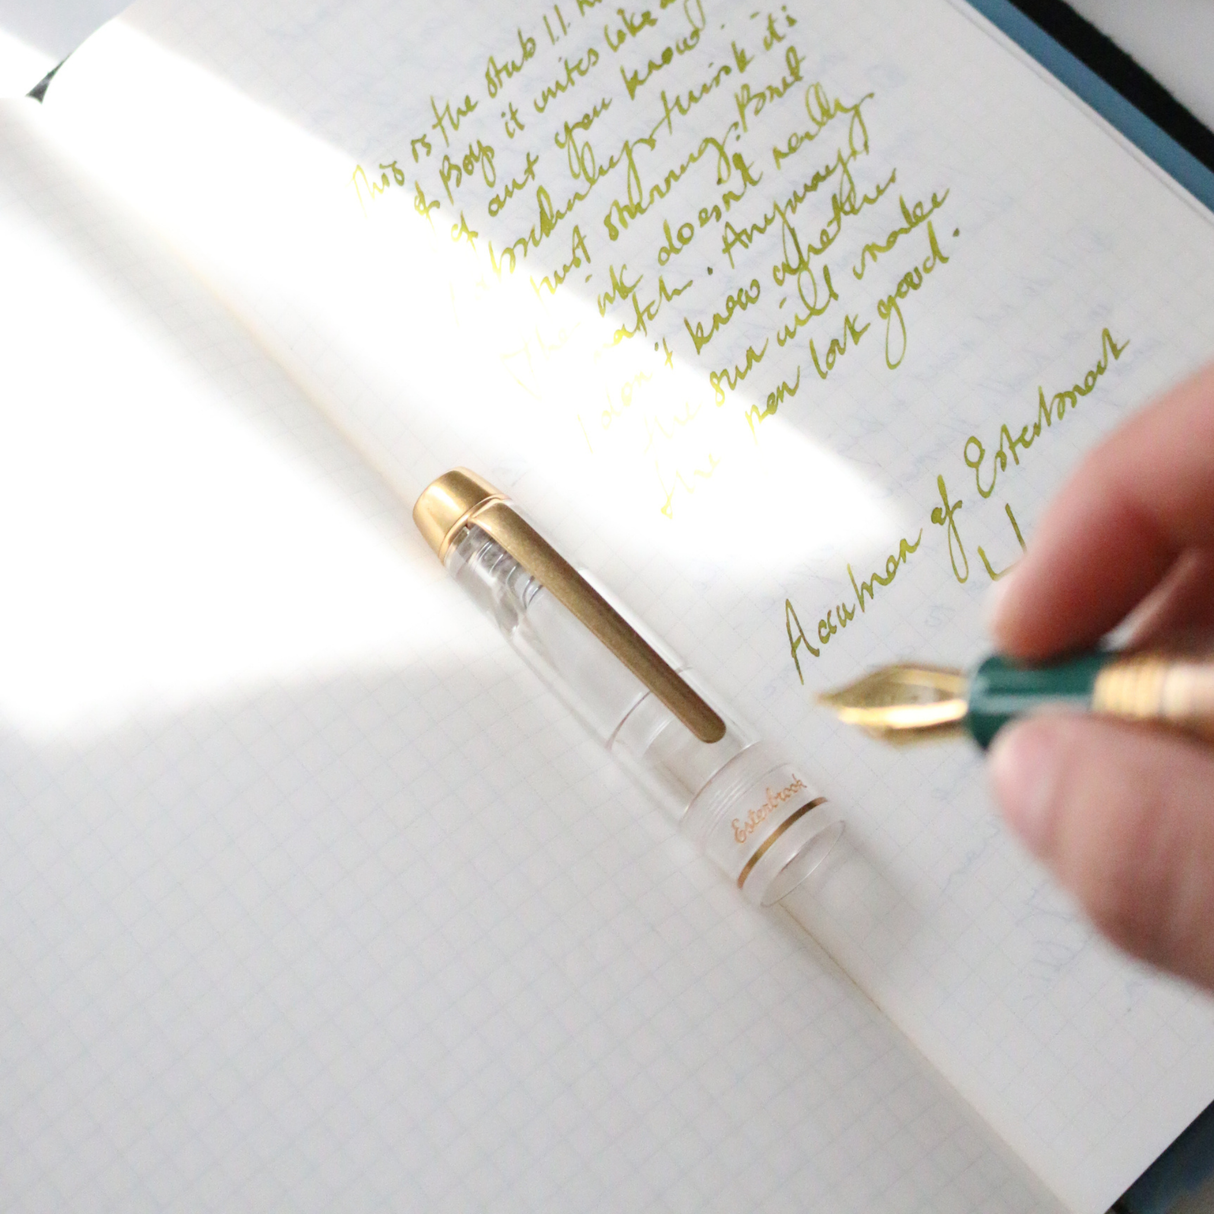 This is the stub 1.1 n
of Boy it writes like a
of out you know.
I think it's
just stunning. But
The ink doesn't really
match. Anyway,
I don't know whether
the sun will make
the pen look good.
Acculmen of Esterbrook
Esterbrook